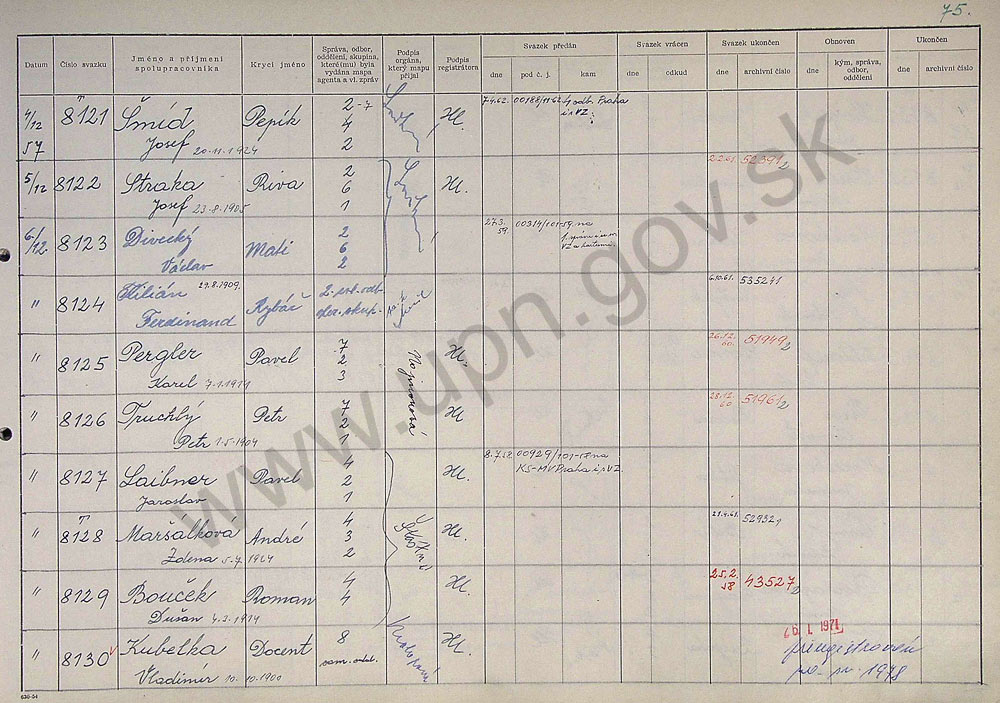 75.
Datum Číslo svazku Jméno a příjmení spolupracovníka Krycí jméno Správa, odbor, oddělení, skupina, které(mu) byla vydána mapa agenta a vl. zpráv Podpis orgána, který mapu přijal Podpis registrátora Svazek předán Svazek vrácen Svazek ukončen Obnoven Ukončen
dne pod č. j. kam dne odkud dne archivní číslo dne kým, správa, odbor, oddělení dne archivní číslo
4/12 57 8121 Šmíd Pepík 2-7 4 2 Hl. 7.4.62. 00188/11-62 odb. Praha i s VZ.
Josef 20.11.1924
5/12 8122 Straka Riva 2 6 1 Hl. 2.2.61. 52391/2
Josef 23.8.1905
6/12 8123 Divecký Mati 2 6 2 27.3. 59. 00314/101-59 na
Václav
" 8124 Kilián 29.8.1909. Rybář 6.10.61. 53524/1
Ferdinand
" 8125 Pergler Pavel 7 2 3 Hl. 26.12. 60. 51949/2
Karel 7.1.1911
" 8126 Truchlý Petr 7 2 1 Hl. 28.12. 60 51961/2
Petr 1.5.1904
" 8127 Laibner Pavel 4 2 1 Hl. 8.7.58. 00929/101-58 na KS-MV Praha i s VZ
Jaroslav
" 8128 Maršálková André 4 3 2 Hl. 21.4.61. 52932/1
Zdena 5.7.1924
" 8129 Bouček Roman 4 4 Hl. 25.2. 58 43527/2
Dušan 4.3.1914
" 8130 Kubelka Docent 8 sam. odděl. Hl. 1971 přeregistrován
Vladimír 10.10.1900 po-pr. 1978
630-54
www.upn.gov.sk